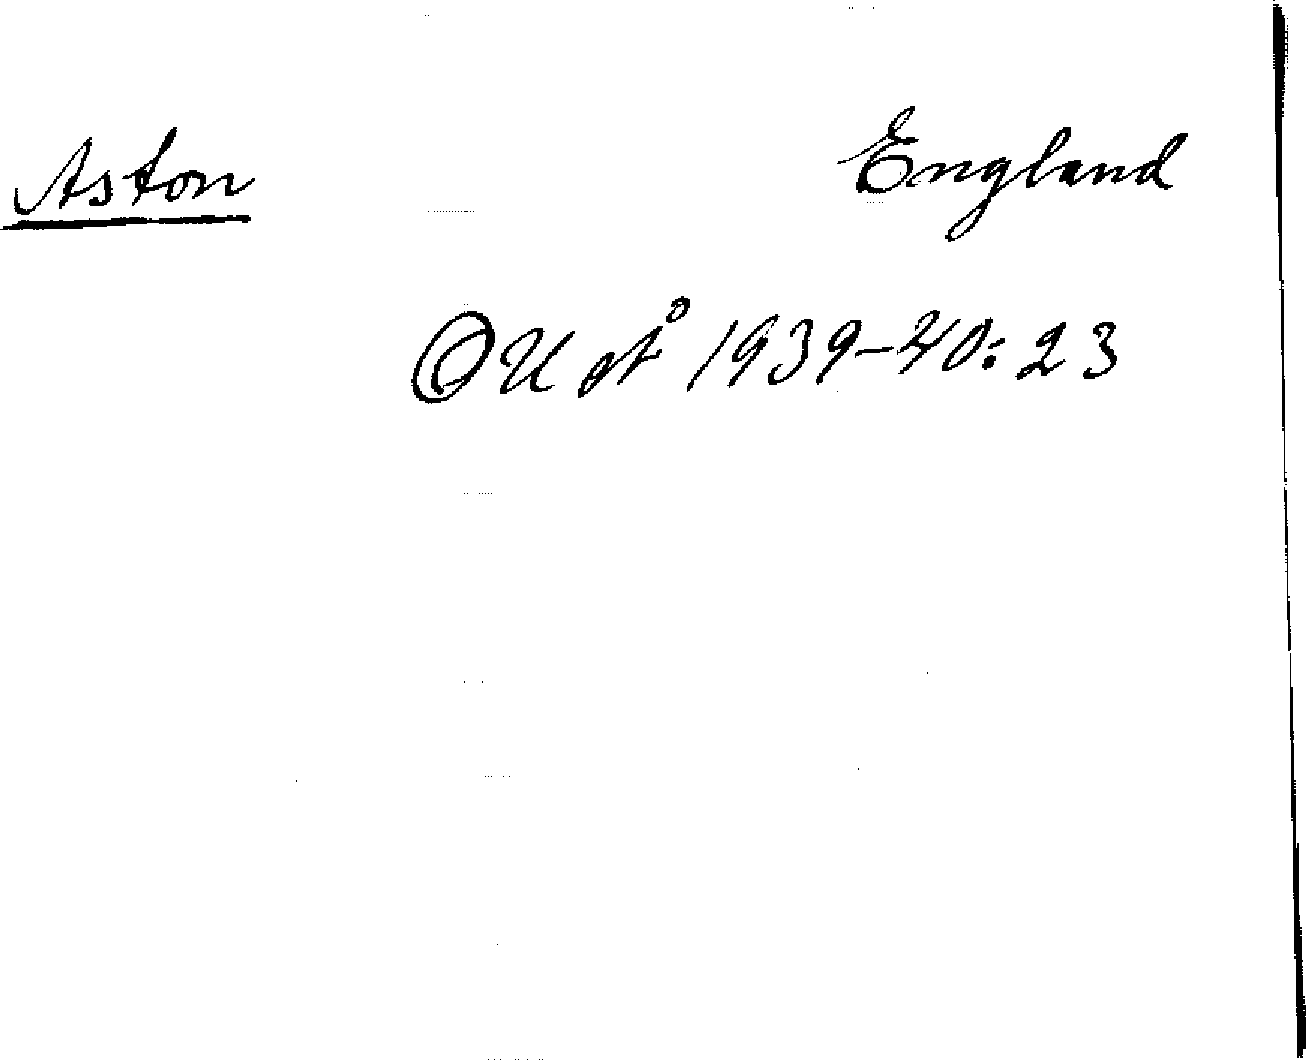 Aston England
OUÅ 1939-40:23